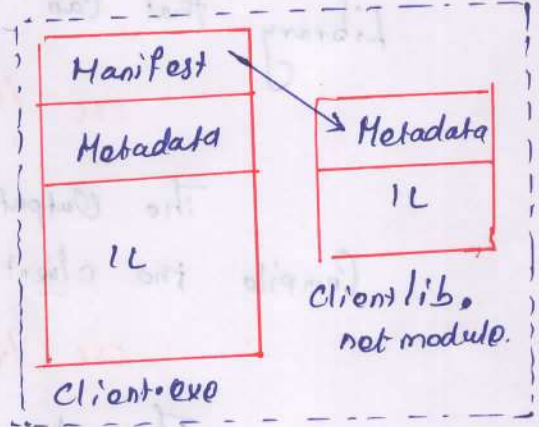 Manifest
Metadata
IL
Client.exe
Metadata
IL
Clientlib.
net module.